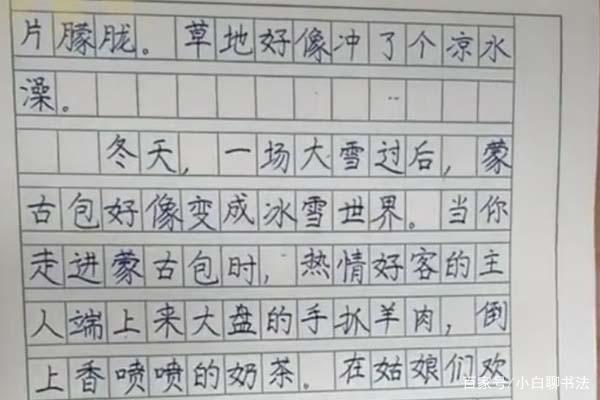 片朦胧。草地好像冲了个凉水
澡。
冬天，一场大雪过后，蒙
古包好像变成冰雪世界。当你
走进蒙古包时，热情好客的主
人端上来大盘的手抓羊肉，倒
上香喷喷的奶茶。在姑娘们欢
百家号/小白聊书法